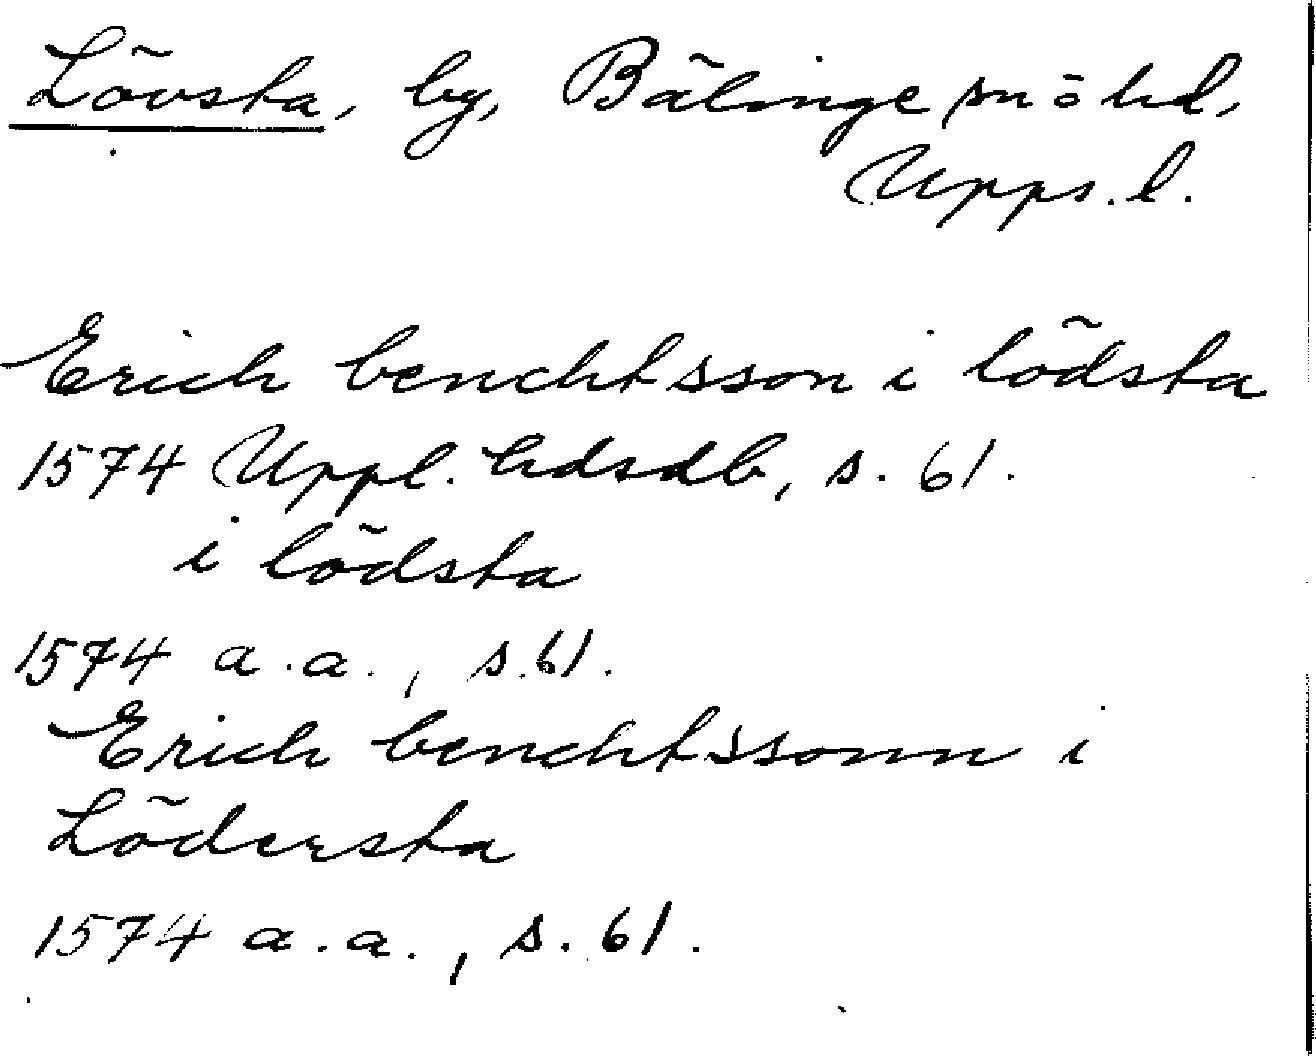 Lövsta, by, Bälinge sn o hd,
Upps. l.
Erich benchtsson i lödsta
1574 Uppl. hdsdb, s. 61.
i lödsta
1574 a.a., s. 61.
Erich benchtssonn i
Lödersta
1574 a.a., s. 61.